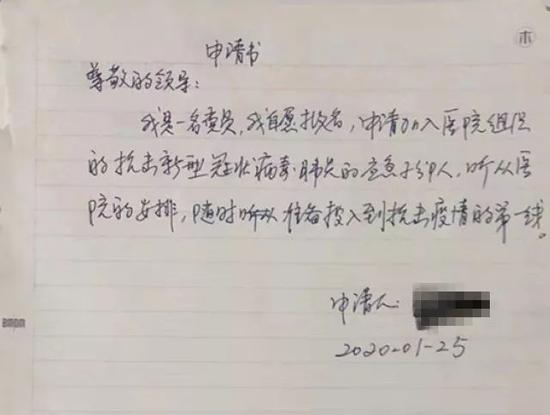 申请书
尊敬的领导：
我是一名党员，我自愿报名，申请加入医院组织
的抗击新型冠状病毒肺炎的应急人，听从医
院的安排，随时听从准备投入到抗击疫情的第一线。
申请人：
2020-01-25